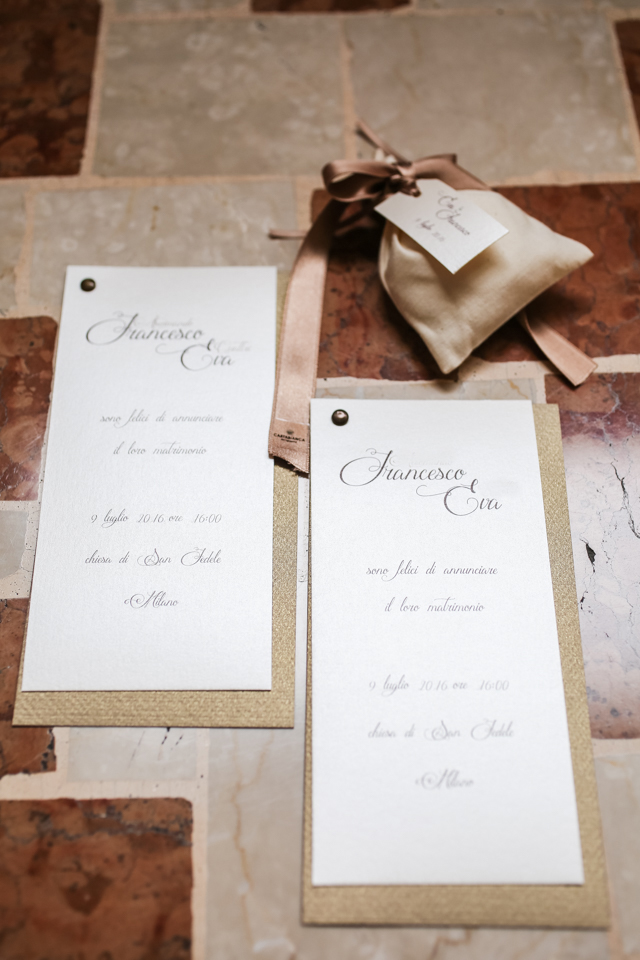 Francesco
Eva
sono felici di annunciare
il loro matrimonio
9 luglio 2016 ore 16:00
chiesa di San Fedele
Milano
Francesco
Eva
sono felici di annunciare
il loro matrimonio
9 luglio 2016 ore 16:00
chiesa di San Fedele
Milano